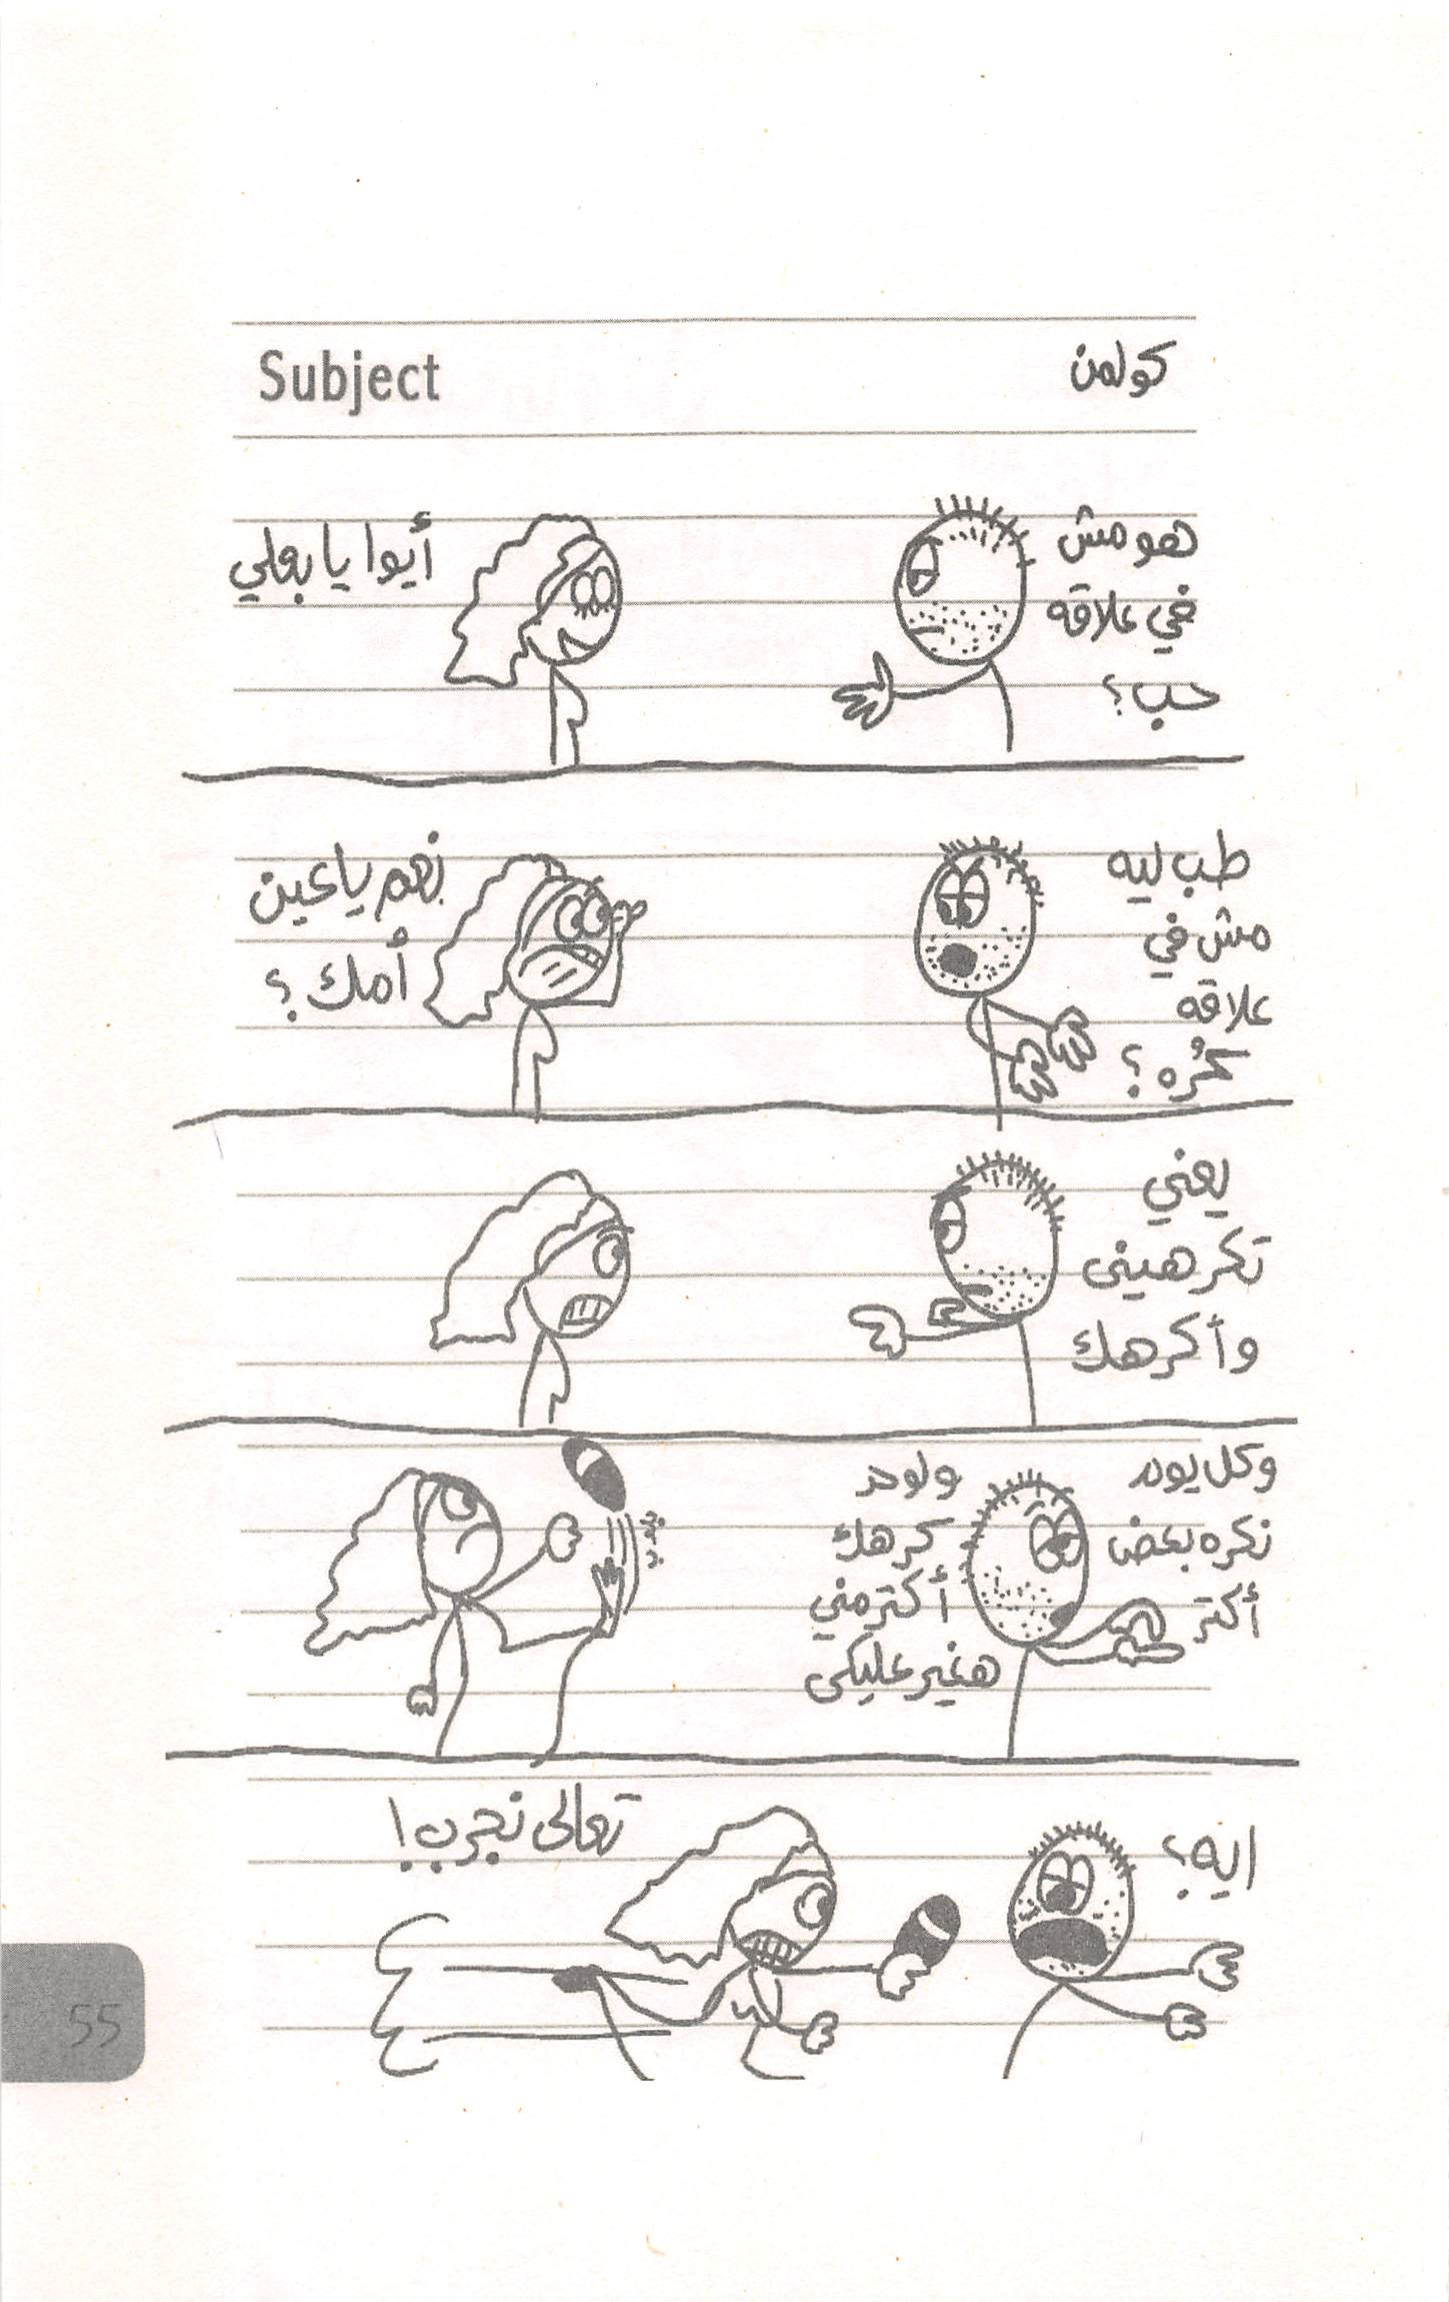 Subject
كولمن
هو مش
في علاقه
حب؟
أيوا يا بعلي
طب ليه
مش في
علاقه
كُره؟
نعم يا عين
أمك؟
يعني
تكرهيني
وأكرهك
وكل يوم
نكره بعض
أكتر
ولو حد
كرهك
أكتر مني
هغير عليكي
ايه؟
تعالى نجرب!
55